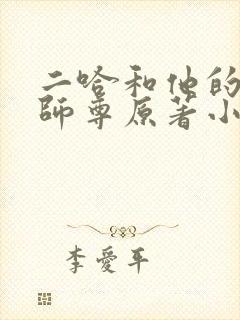 二哈和他的
師尊原著小
李愛平